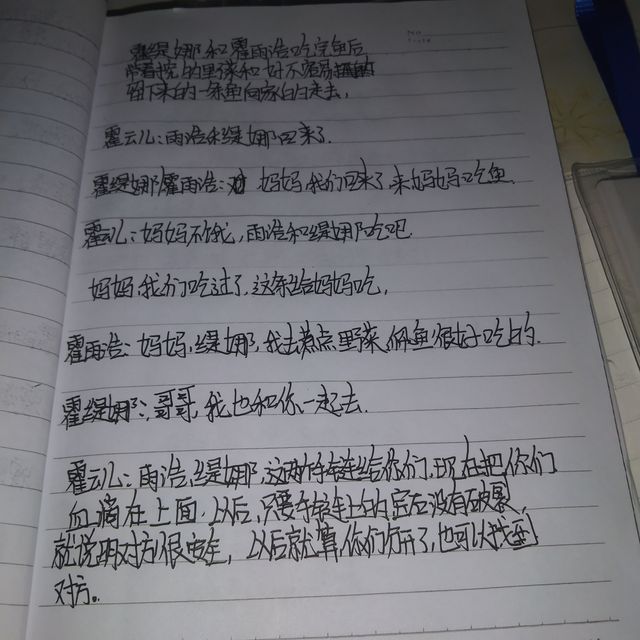 霍缇娜和霍雨浩吃完鱼后
带着挖的野菜和好不容易
留下来的一条鱼向家的走去,
霍云儿:雨浩和缇娜回来了.
霍缇娜霍雨浩: 妈妈我们回来了,来妈妈吃鱼.
霍云儿:妈妈不饿,雨浩和缇娜吃吧.
妈妈,我们吃过了,这条给妈妈吃,
霍雨浩:妈妈,缇娜,我去煮点野菜,你鱼很好吃的.
霍缇娜:哥哥,我也和你一起去.
霍云儿:雨浩,缇娜,这两个手链给你们,现在把你们
血滴在上面.以后,只要手链上的宝石没有破裂,
就说明对方很安全,以后就算你们分开了,也可以找到
对方。